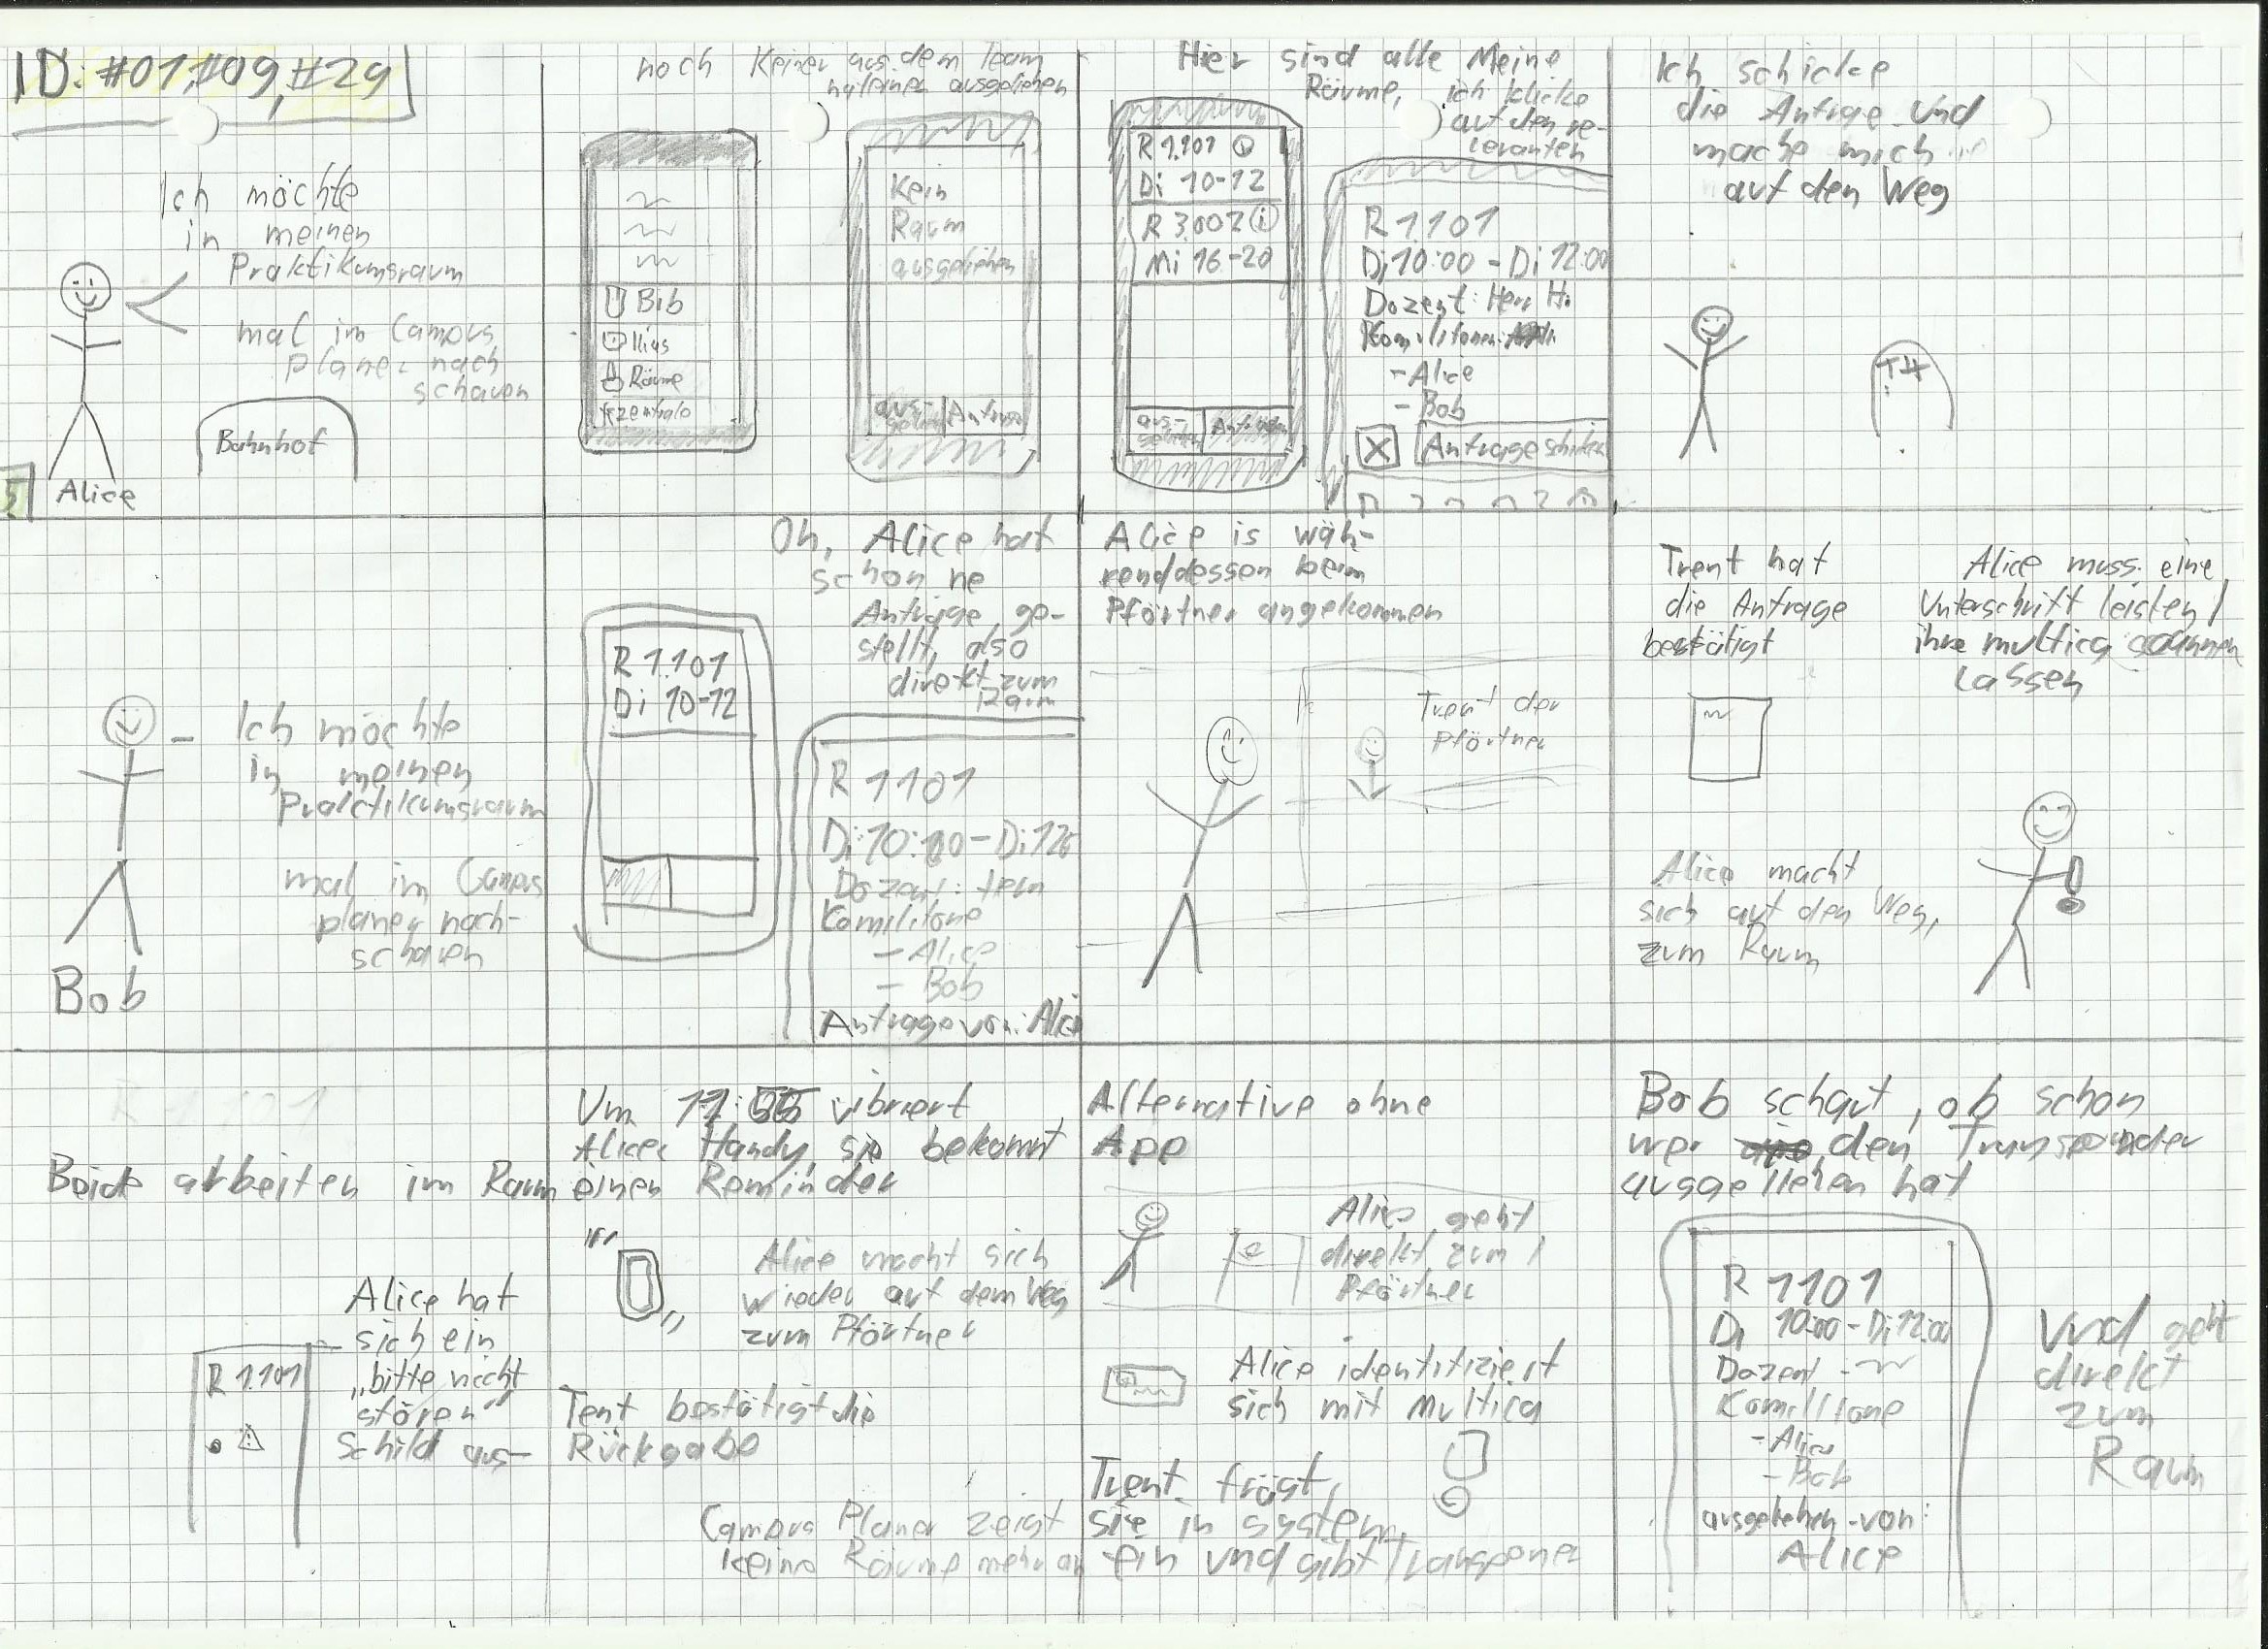 ID: #01,#09,#29
Ich möchte
in meinen
Praktikumsraum
mal im Campus
planer nach
schauen
Bahnhof
Alice
noch Keiner aus dem Team
ausgeliehen
Bib
Ilias
Räume
Kein
Raum
ausgeliehen
aus-
Anfrage
Hier sind alle Meine
Räume, ich klicke
auf den re-
levanten
R 1.101 i
Di 10-12
R 3.002 i
Mi 16-20
aus-
R 1101
Di 10:00 - Di 12:00
Dozent: Herr H.
Komilitonen:
- Alice
- Bob
X Anfrage schicken
Ich schicke
die Anfrage und
mache mich
auf den Weg
TH
Bob
- Ich möchte
in meinen
Praktikumsraum
mal im Campus
planer nach-
schauen
Oh, Alice hat
schon ne
Anfrage ge-
stellt, also
direkt zum
Raum
R 1.101
Di 10-12
R 1101
Di 10:00 - Di 12
Dozent:
Komilitone
- Alice
- Bob
Anfrage von: Alice
Alice is wäh-
renddessen beim
Pförtner angekommen
Trent der
Pförtner
Trent hat
die Anfrage
bestätigt
Alice muss eine
Unterschrift leisten /
ihre multica scannen
lassen
Alice macht
sich auf den Weg,
zum Raum
R 1101
Beide arbeiten im Raum
Alice hat
sich ein
„bitte nicht
stören"
Schild aus-
R 1.101
Um 11:55 vibriert
Alices Handy, sie bekommt
einen Reminder
Alice macht sich
wieder auf dem Weg
zum Pförtner
Tent bestätigt die
Rückgabe
Campus Planer zeigt
keine Räume mehr an
Alternative ohne
App
Alice geht
direkt zum
Pförtner
Alice identifiziert
sich mit Multica
Trent frägt
sie in system
ein und gibt Transponer
Bob schaut, ob schon
wer den Transponder
ausgeliehen hat
R 1101
Di 10:00 - Di 12:00
Dozent -
Komilitone
- Alice
- Bob
ausgeliehen von:
Alice
Und geht
direkt
zum
Raum